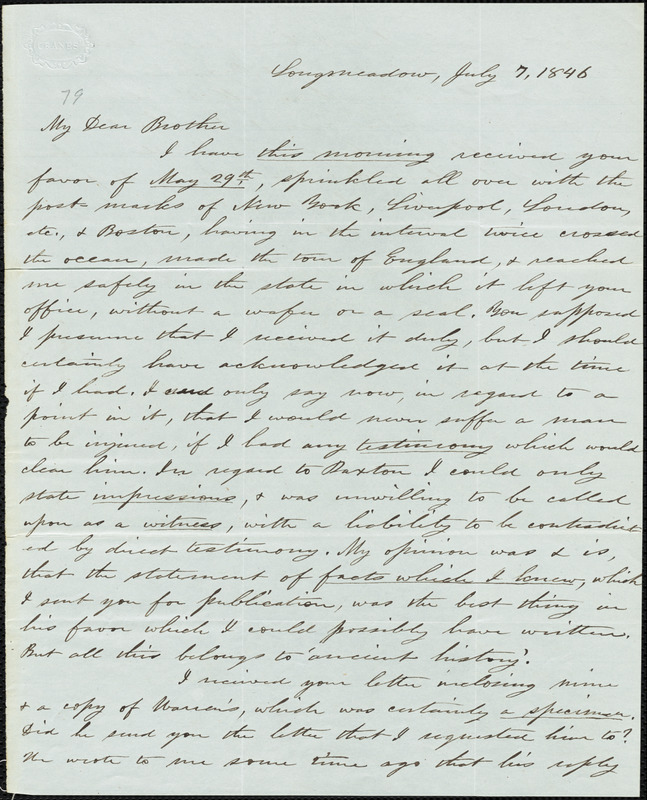 Longmeadow, July 7, 1846
79
My Dear Brother
I have this morning received your
favor of May 29th, sprinkled all over with the
post-marks of New York, Liverpool, London,
etc., & Boston, having in the interval twice crossed
the ocean, made the tour of England, & reached
me safely in the state in which it left your
office, without a wafer or a seal. You supposed
I presume that I received it duly, but I should
certainly have acknowledged it at the time
if I had. I can only say now, in regard to a
point in it, that I would never suffer a man
to be injured, if I had any testimony which would
clear him. In regard to Paxton I could only
state impressions, & was unwilling to be called
upon as a witness, with a liability to be contradict
ed by direct testimony. My opinion was & is,
that the statement of facts which I knew, which
I sent you for publication, was the best thing in
his favor which I could possibly have written.
But all this belongs to 'ancient history'.
I received your letter inclosing mine
& a copy of Warren's, which was certainly a specimen.
Did he send you the letter that I requested him to?
He wrote to me some time ago that his reply